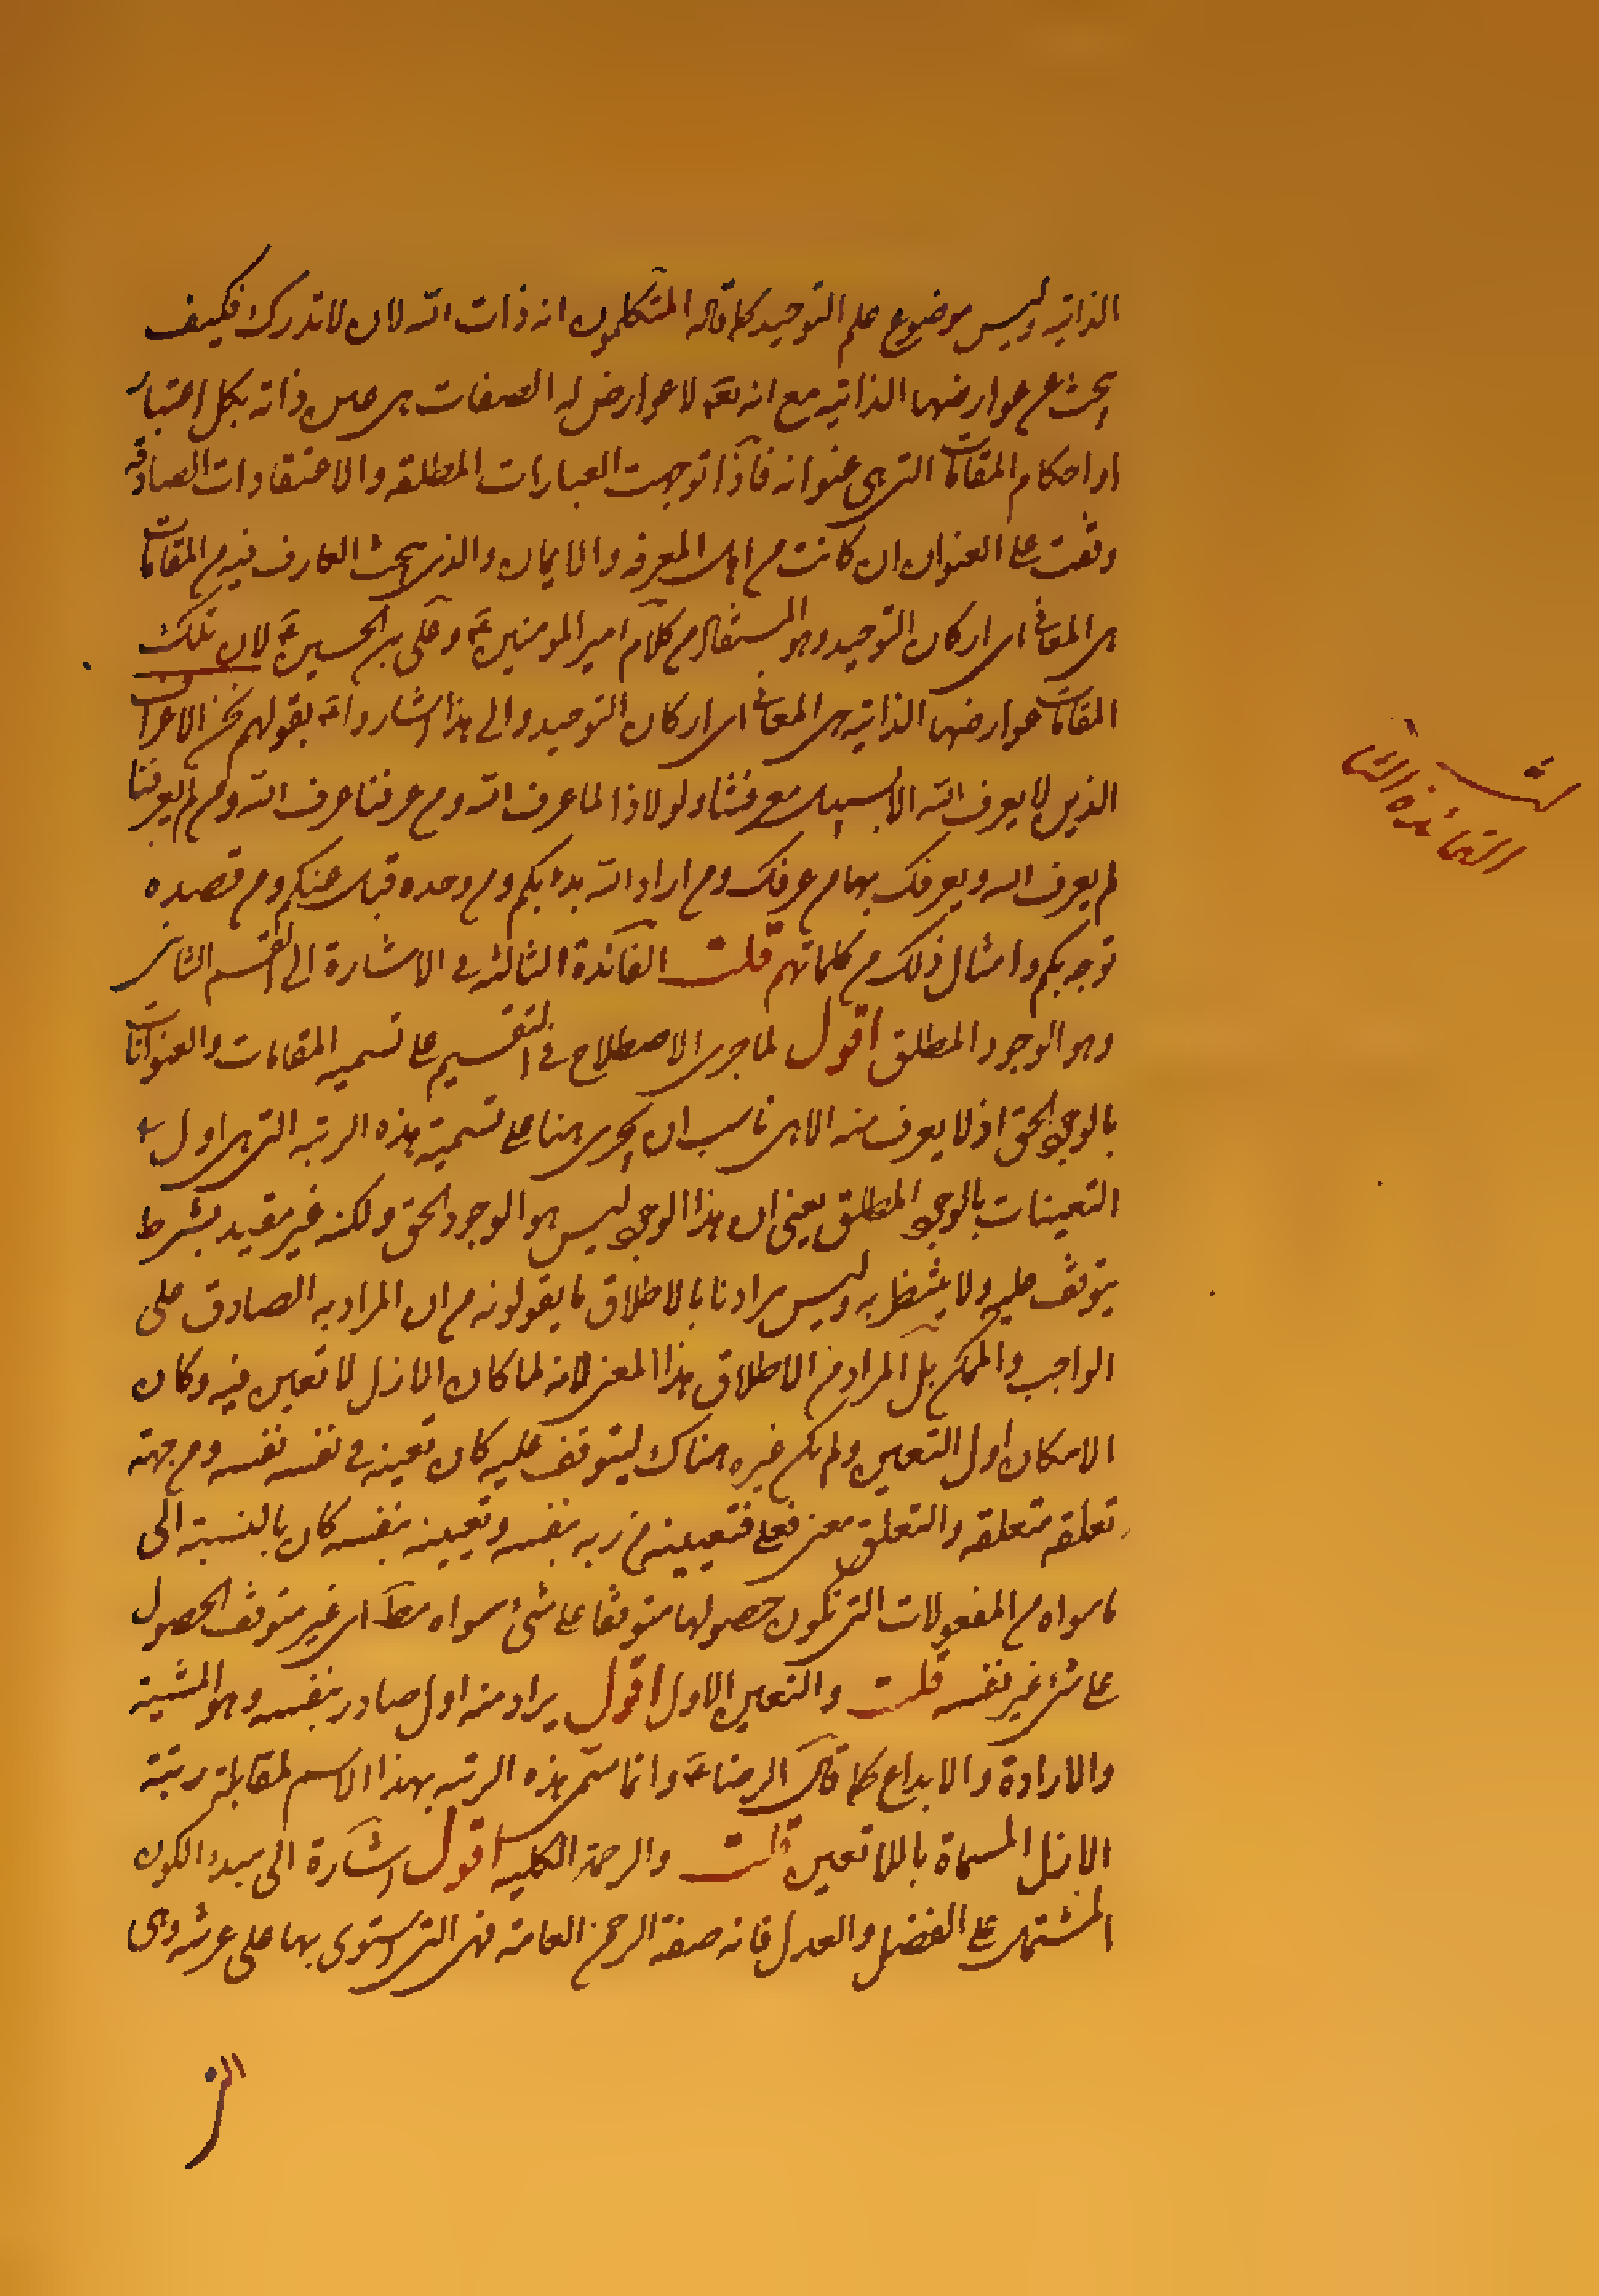 الذاتیه ولیس موضوع علم التوحید کما قاله المتکلمون انه ذات الله لان لا تدرک فکیف
یبحث عن عوارضها الذاتیه مع انه تعه لا عوارض له الصفات هی عین ذاته بکل اعتبار
او احکام المقامات التی هی عنوانه فاذا توجهت العبارات المطلقه والاعتقادات الصادقه
وقعت علی العنوان ان کانت من اهل المعرفه والایمان والذی یبحث العارف فیه من المقامات
هی المعانی ای ارکان التوحید وهو المستفاد من کلام امیر المومنین ع وعلی بن الحسین ع لان تلک
المقامات عوارضها الذاتیه هی المعانی ای ارکان التوحید والی هذا اشاروا ع بقولهم نحن الاعراف
الذین لا یعرف الله الا بسبیل معرفتنا ولولانا لما عرف الله ومن عرفنا عرف الله ومن لم یعرفنا
لم یعرف الله ویعرفک بها من عرفک ومن اراد الله بدء بکم ومن وحده قبل عنکم ومن قصده
توجه بکم وامثال ذلک من کلماتهم قلت الفائدة الثالثه فی الاشارة الی القسم الثانی
وهو الوجود المطلق اقول لما جری الاصطلاح فی التقسیم علی تسمیه المقامات والعنوانات
بالوجود الحق اذ لا یعرف منه الا هی ناسب ان یجری هنا علی تسمیة هذه الرتبه التی هی اول
التعینات بالوجود المطلق یعنی ان هذا الوجود لیس هو الوجود الحق ولکنه غیر مقید بشرط
یتوقف علیه ولا ینتظر به ولیس مرادنا بالاطلاق ما یقولونه من ان المراد به الصادق علی
الواجب والممکن بل المراد من الاطلاق هذا المعنی لانه لما کان الازل لا تعین فیه وکان
الامکان اول التعین ولم یکن غیره هناک لیتوقف علیه کان تعینه فی نفسه نفسه ومن جهة
تعلقه متعلقه والتعلق معنی فعلی فتعیینه من ربه بنفسه وتعیینه بنفسه کان بالنسبة الی
ما سواه من المفعولات التی تکون حصولها متوقفا علی شیء سواه مط ای غیر متوقف الحصول
علی شیء غیر نفسه قلت والتعین الاول اقول یراد منه اول صادر بنفسه وهو المشیة
والارادة والابداع کما قال الرضا ع وانما سمی هذه الرتبه بهذا الاسم لمقابلة رتبة
الازل المسماة باللا تعین قلت والرحمة الکلیه اقول اشارة الی مبدء الکون
المشتمل علی الفضل والعدل فانه صفة الرحمن العامة فهی التی استوی بها علی عرشه وهی
الفائدة الثا
لثة